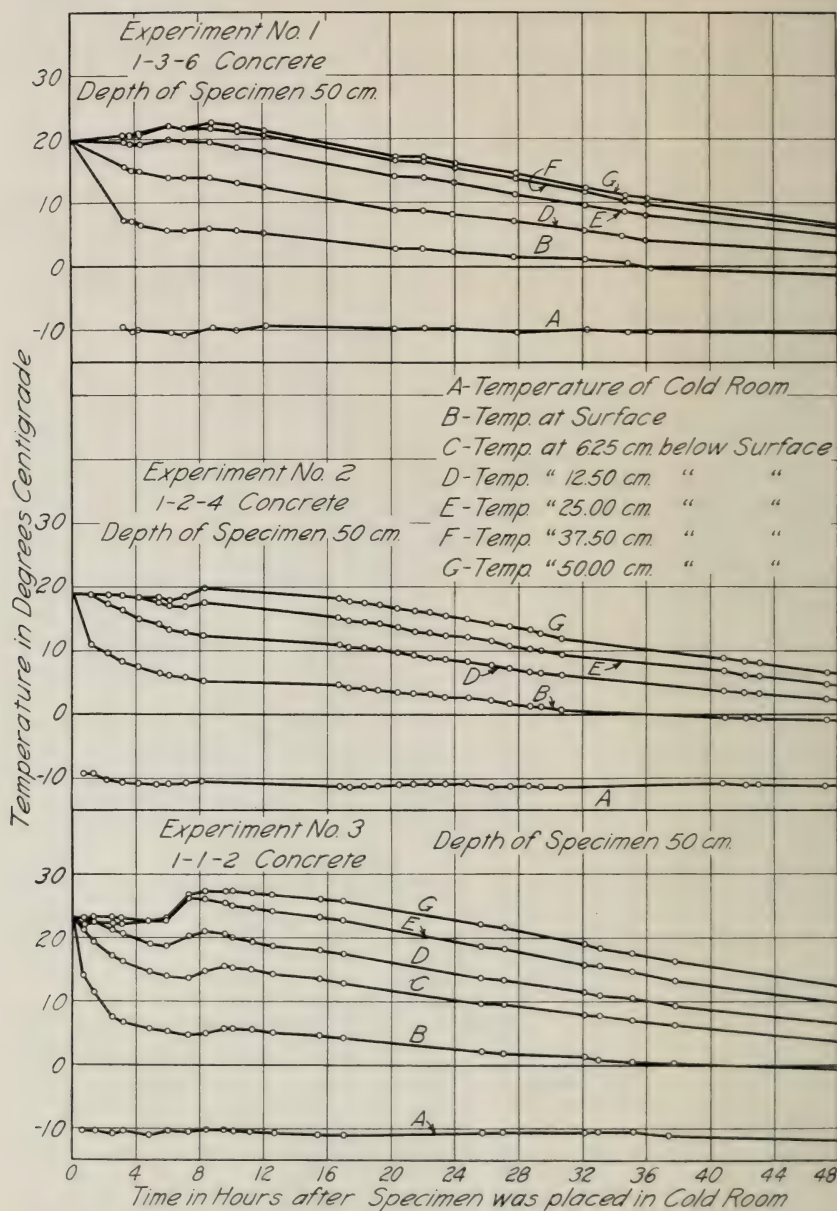 Experiment No. 1
1-3-6 Concrete
Depth of Specimen 50 cm.
30
20
10
0
-10
F
G
G
E
D
B
A
Temperature in Degrees Centigrade
A-Temperature of Cold Room
B-Temp. at Surface
C-Temp. at 6.25 cm. below Surface
D-Temp. " 12.50 cm. " "
E-Temp. " 25.00 cm. " "
F-Temp. " 37.50 cm. " "
G-Temp. " 50.00 cm. " "
Experiment No. 2
1-2-4 Concrete
Depth of Specimen 50 cm.
30
20
10
0
-10
G
E
D
B
A
Experiment No. 3
1-1-2 Concrete
Depth of Specimen 50 cm.
30
20
10
0
-10
G
E
D
C
B
A
0 4 8 12 16 20 24 28 32 36 40 44 48
Time in Hours after Specimen was placed in Cold Room